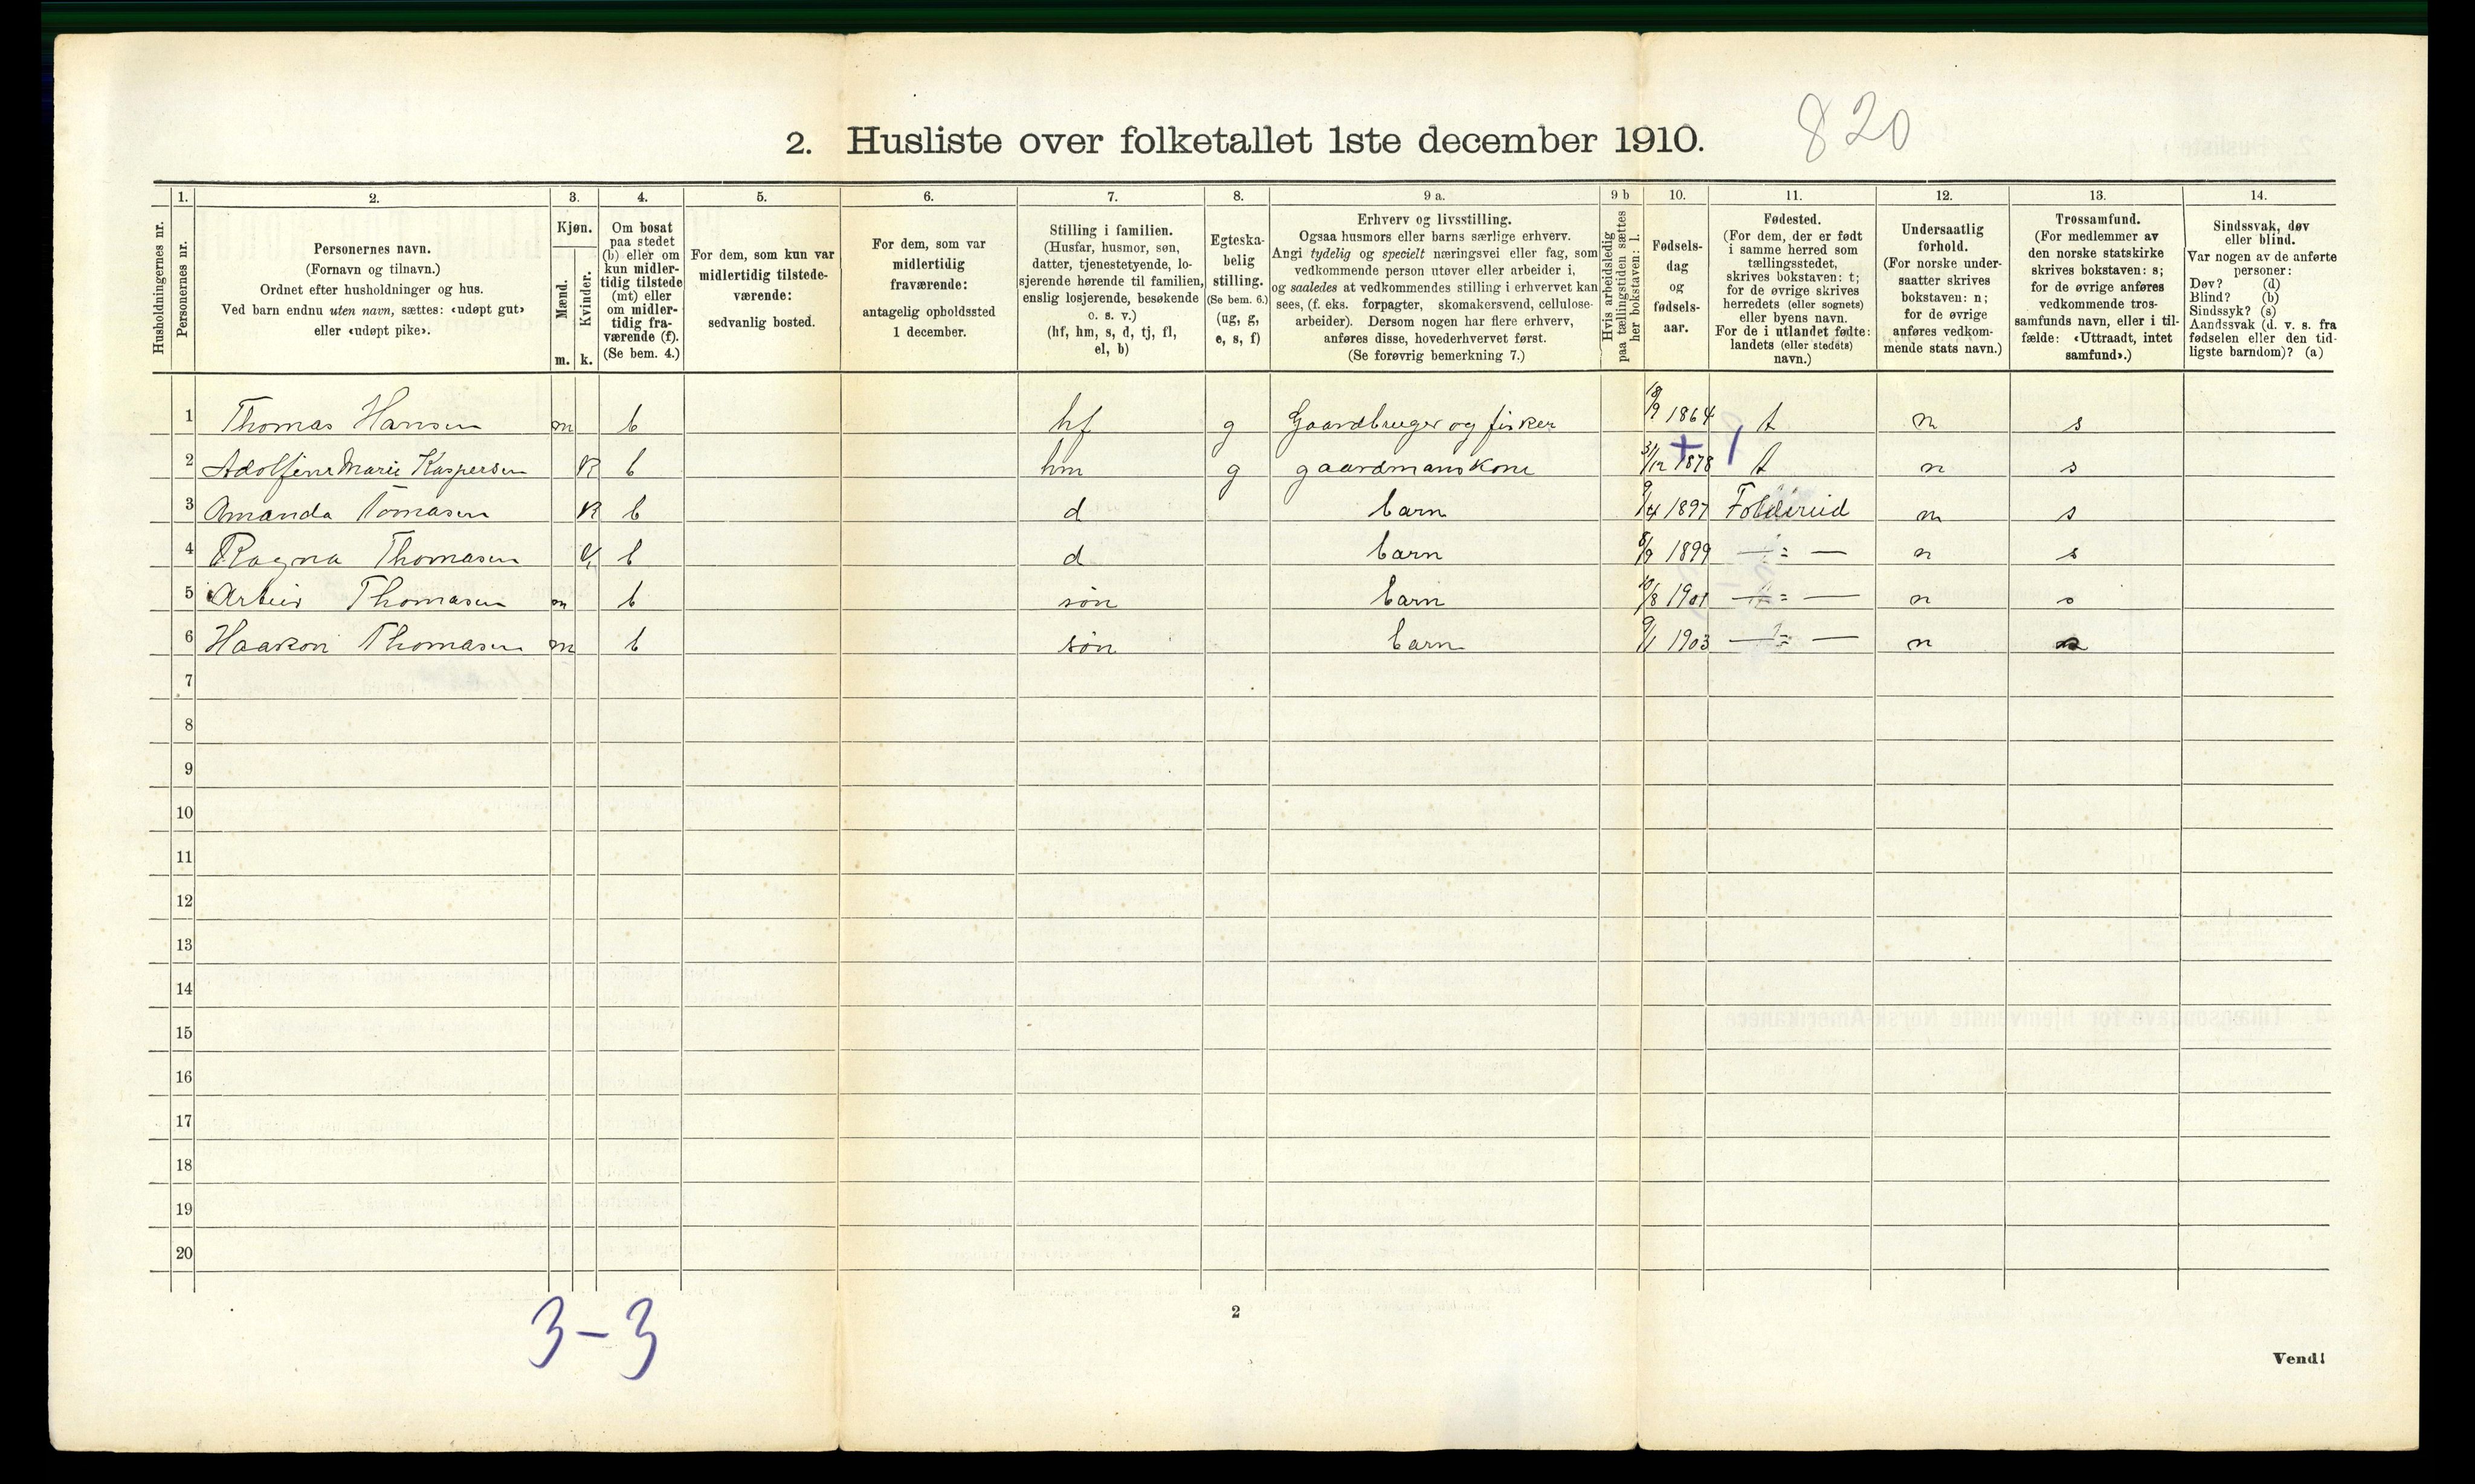 2. Husliste over folketallet 1ste december 1910. 820
1. 2. 3. 4. 5. 6. 7. 8. 9 a. 9 b 10. 11. 12. 13. 14.
Husholdningernes nr.
Personernes nr.
Personernes navn.
(Fornavn og tilnavn.)
Ordnet efter husholdninger og hus.
Ved barn endnu uten navn, sættes: «udøpt gut»
eller «udøpt pike».
Kjøn.
Mænd.
Kvinder.
m. k.
Om bosat
paa stedet
(b) eller om
kun midler-
tidig tilstede
(mt) eller
om midler-
tidig fra-
værende (f).
(Se bem. 4.)
For dem, som kun var
midlertidig tilstede-
værende:
sedvanlig bosted.
For dem, som var
midlertidig
fraværende:
antagelig opholdssted
1 december.
Stilling i familien.
(Husfar, husmor, søn,
datter, tjenestetyende, lo-
sjerende hørende til familien,
enslig losjerende, besøkende
o. s. v.)
(hf, hm, s, d, tj, fl,
el, b)
Egteska-
belig
stilling.
(Se bem. 6.)
(ug, g,
e, s, f)
Erhverv og livsstilling.
Ogsaa husmors eller barns særlige erhverv.
Angi tydelig og specielt næringsvei eller fag, som
vedkommende person utøver eller arbeider i,
og saaledes at vedkommendes stilling i erhvervet kan
sees, (f. eks. forpagter, skomakersvend, cellulose-
arbeider). Dersom nogen har flere erhverv,
anføres disse, hovederhvervet først.
(Se forøvrig bemerkning 7.)
Hvis arbeidsledig
paa tællingstiden sættes
her bokstaven: l.
Fødsels-
dag
og
fødsels-
aar.
Fødested.
(For dem, der er født
i samme herred som
tællingsstedet,
skrives bokstaven: t;
for de øvrige skrives
herredets (eller sognets)
eller byens navn.
For de i utlandet fødte:
landets (eller stedets)
navn.)
Undersaatlig
forhold.
(For norske under-
saatter skrives
bokstaven: n;
for de øvrige
anføres vedkom-
mende stats navn.)
Trossamfund.
(For medlemmer av
den norske statskirke
skrives bokstaven: s;
for de øvrige anføres
vedkommende tros-
samfunds navn, eller i til-
fælde: «Uttraadt, intet
samfund».)
Sindssvak, døv
eller blind.
Var nogen av de anførte
personer:
Døv? (d)
Blind? (b)
Sindssyk? (s)
Aandssvak (d. v. s. fra
fødselen eller den tid-
ligste barndom)? (a)
1 Thomas Hansen m b hf g Gaardbruger og fisker 18/9 1864 t n s
2 Adolfine Marie Kaspersen k b hm g gaardmanskone 31/12 1878 t n s
3 Amanda Tomasen k b d barn 9/4 1897 Foldereid n s
4 Ragna Thomasen k b d barn 8/9 1899 — = — n s
5 Thomasen m b søn barn 10/8 1901 — = — n s
6 Haakon Thomasen m b søn barn 9/1 1903 — = — n s
7
8
9
10
11
12
13
14
15
16
17
18
19
20
3-3
2
Vend!